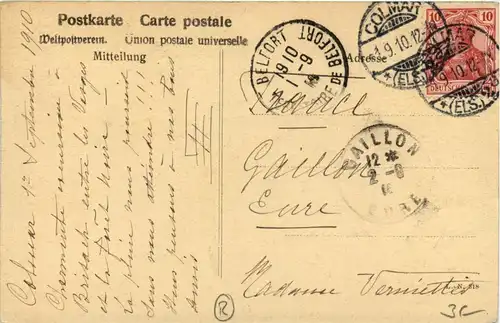 Postkarte Carte postale
Weltpostverein. Union postale universelle
Mitteilung
Adresse
COLMAR
1.9.10.12-
*(ELS.)
COLMAR
9.10.12-
*(ELS.)
10
10
BELFORT
19 10
-9
BELFORT
GAILLON
12 *
2-9
10
EURE
Colmar 1er Septembre 1910
Charmante excursion à
Brisach entre les Vosges
et la Forêt Noire.
La pluie nous poursuit
sans nous atteindre !!!
Nous pensons à nos bons
Amis
France
Gaillon
Eure
Madame
R
3c